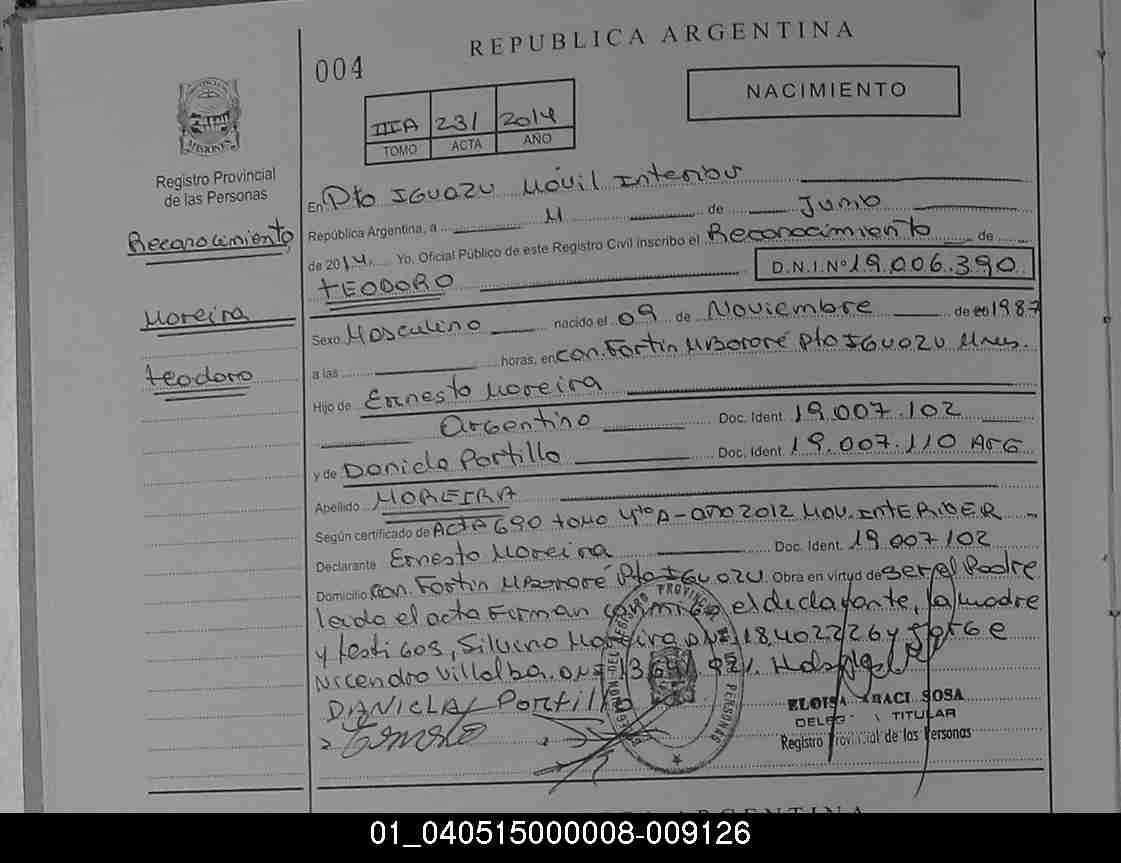 REPUBLICA ARGENTINA
004
NACIMIENTO
IIIA 231 2014
TOMO ACTA AÑO
MISIONES
Registro Provincial
de las Personas
En Pto IGUAZU Móvil Interior
República Argentina, a 11 de Junio
de 2014. Yo. Oficial Público de este Registro Civil inscribo el Reconocimiento de
TEODORO D.N.I.Nº 19.006.390
Reconocimiento
Moreira
teodoro
Sexo Masculino nacido el 09 de Noviembre de 1987
a las horas, en Con. Fortín Mbororé Pto IGUAZU Mnes.
Hijo de Ernesto Moreira
Argentino Doc. Ident. 19.007.102
y de Daniela Portillo Doc. Ident. 19.007.110 Arg
Apellido MOREIRA
Según certificado de ACTA 690 tomo 4to A-año 2012 Mov. INTERIOER
Declarante Ernesto Moreira Doc. Ident. 19007102
Domicilio Con. Fortín Mbororé Pto IGUAZU. Obra en virtud de ser el Padre
leido el acta Firman conmigo el declarante, la madre
y testigos, Silvino Moreira DNI 18.402226 y Jorge
Nicendro Villalba. DNI
DANIELA Portillo
Ernesto
ELOISA ARACI SOSA
TITULAR
Registro Provincial de las Personas
01_040515000008-009126